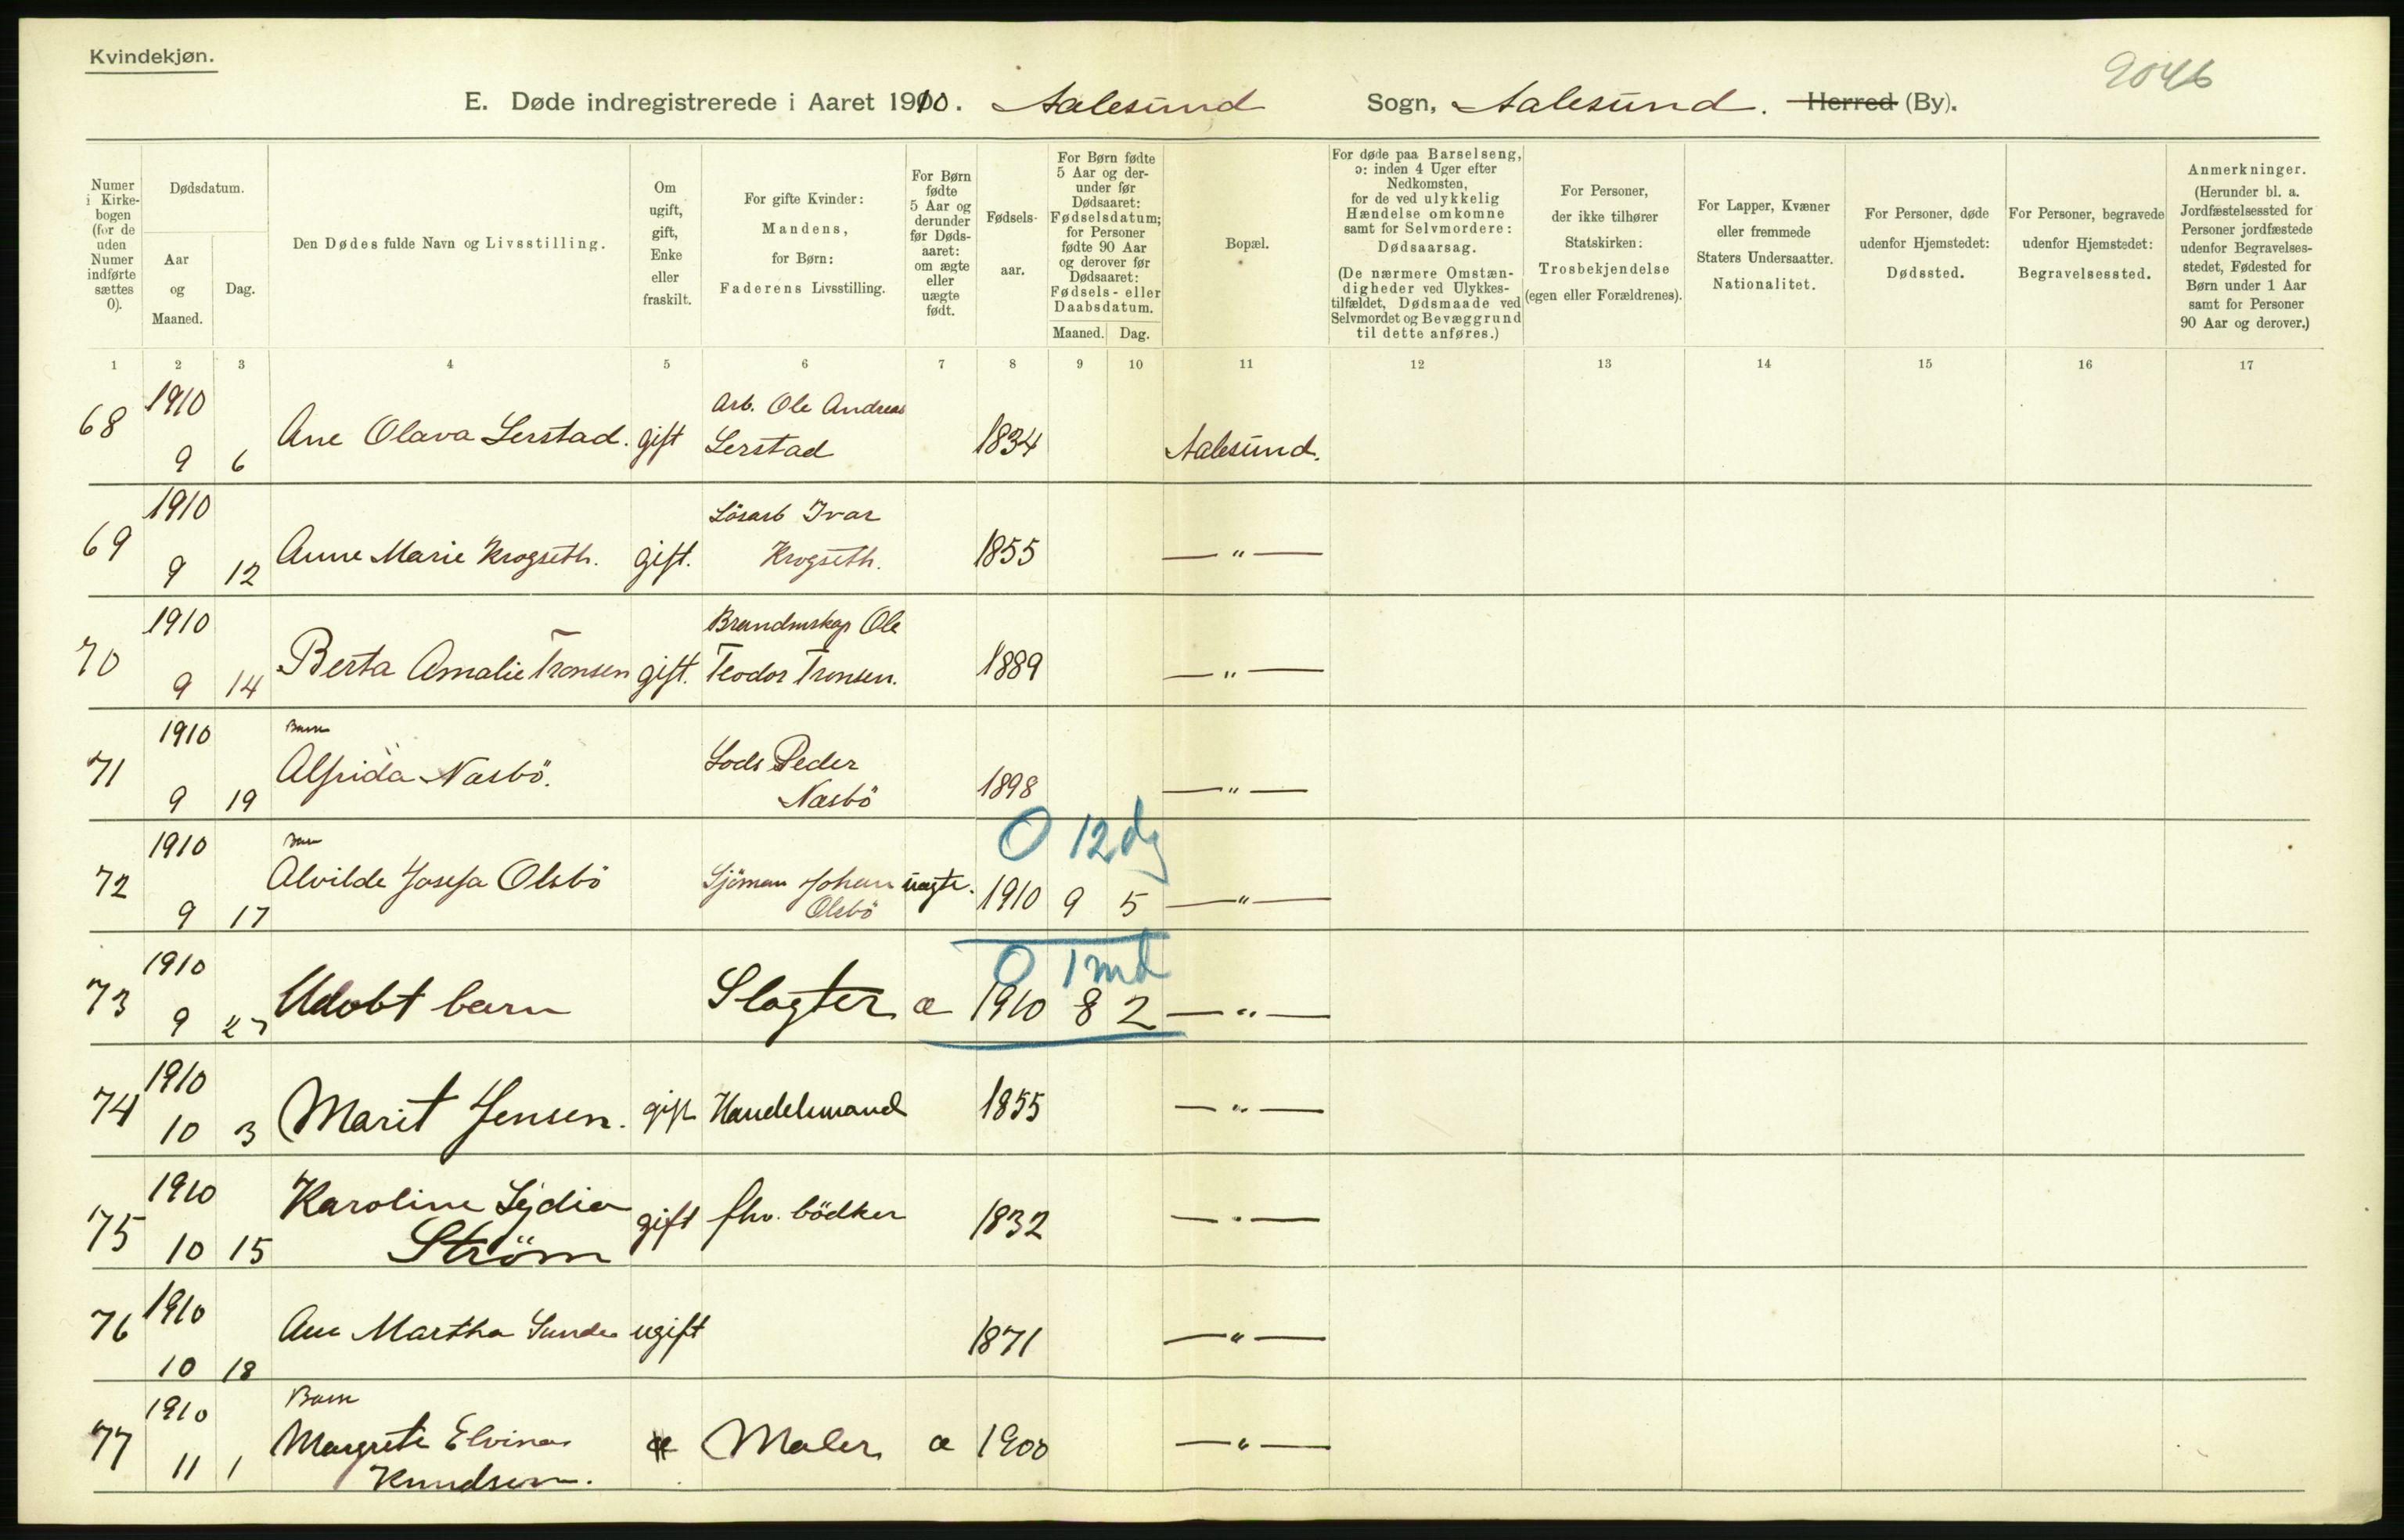 Kvindekjøn.
9046
E. Døde indregistrerede i Aaret 1910. Aalesund Sogn, Aalesund. Herred (By).
Numer i Kirkebogen (for de uden Numer indførte sættes 0).
Dødsdatum.
Aar og Maaned.
Dag.
Den Dødes fulde Navn og Livsstilling.
Om ugift, gift, Enke eller fraskilt.
For gifte Kvinder: Mandens, for Børn: Faderens Livsstilling.
For Børn fødte 5 Aar og derunder før Dødsaaret: om ægte eller uægte født.
Fødselsaar.
For Børn fødte 5 Aar og derunder før Dødsaaret: Fødselsdatum; for Personer fødte 90 Aar og derover før Dødsaaret: Fødsels- eller Daabsdatum.
Maaned. Dag.
Bopæl.
For døde paa Barselseng, ɔ: inden 4 Uger efter Nedkomsten, for de ved ulykkelig Hændelse omkomne samt for Selvmordere: Dødsaarsag.
(De nærmere Omstændigheder ved Ulykkestilfældet, Dødsmaade ved Selvmordet og Bevæggrund til dette anføres.)
For Personer, der ikke tilhører Statskirken: Trosbekjendelse (egen eller Forældrenes).
For Lapper, Kvæner eller fremmede Staters Undersaatter. Nationalitet.
For Personer, døde udenfor Hjemstedet: Dødssted.
For Personer, begravede udenfor Hjemstedet: Begravelsessted.
Anmerkninger.
(Herunder bl. a. Jordfæstelsessted for Personer jordfæstede udenfor Begravelsesstedet, Fødested for Børn under 1 Aar samt for Personer 90 Aar og derover.)
1 2 3 4 5 6 7 8 9 10 11 12 13 14 15 16 17
1910 Arb. Ole Andreas
68 9 6 Ane Olava Lerstad. gift Lerstad 1834 Aalesund.
1910 Lösarb Ivar
69 9 12 Anne Marie Krogseth. gift. Krogseth. 1855 — " —
1910 Ole
70 9 14 Berta Amalie Tronsen gift. Teodor Tronsen. 1889 — " —
1910 Barn
71 9 19 Alfrida Næsbö. Lods Peder Næsbö 1898 — " —
0 12 dg
1910 Barn
72 9 17 Alvilde Josefa Olsbö Sjöman Johan Olsbö uægte. 1910 9 5 — " —
0 1 md
1910
73 9 27 Udobt barn Slagter æ 1910 8 2 — " —
1910
74 10 3 Marit Jensen. gift Handelsmand 1855 — " —
1910 Karoline Lydia
75 10 15 Ström gift fhv. bödker 1832 — " —
1910
76 10 18 Ane Martha Sunde ugift 1871 — " —
1910 Barn
77 11 1 Margrete Elvina Maler æ 1900 — " —
Knudsen.